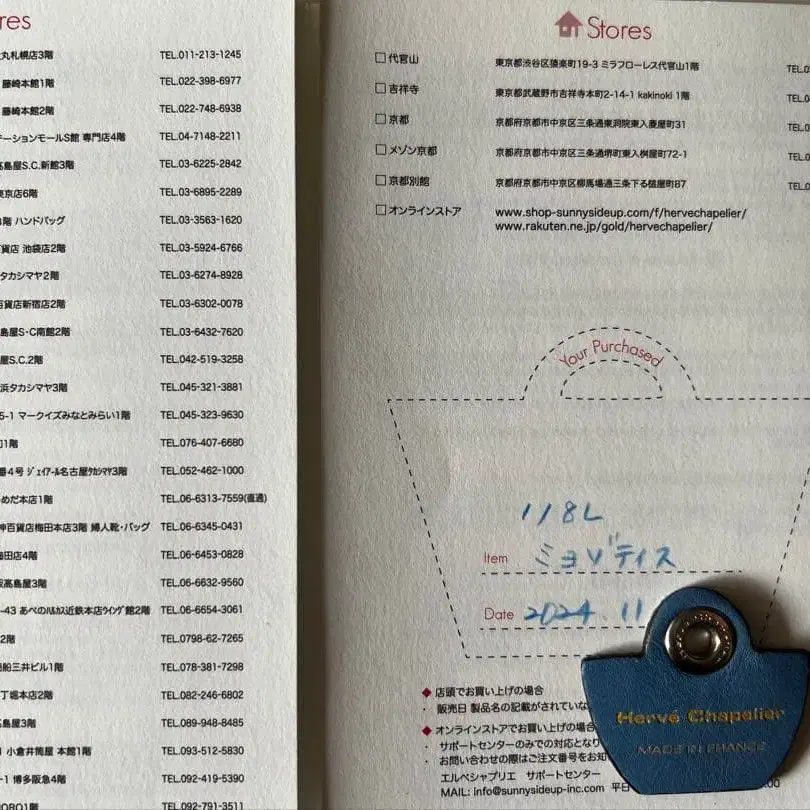 res
丸札幌店3階 TEL.011-213-1245
藤崎本館1階 TEL.022-398-6977
藤崎本館2階 TEL.022-748-6938
テーションモールS館 専門店4階 TEL.04-7148-2211
高島屋S.C.新館3階 TEL.03-6225-2842
東京店6階 TEL.03-6895-2289
階 ハンドバッグ TEL.03-3563-1620
貨店 池袋店2階 TEL.03-5924-6766
タカシマヤ2階 TEL.03-6274-8928
百貨店新宿店2階 TEL.03-6302-0078
島屋S-C南館2階 TEL.03-6432-7620
屋S.C.2階 TEL.042-519-3258
浜タカシマヤ3階 TEL.045-321-3881
5-1 マークイズみなとみらい1階 TEL.045-323-9630
1階 TEL.076-407-6680
番4号 ジェイアール名古屋タカシマヤ3階 TEL.052-462-1000
めだ本店1階 TEL.06-6313-7559(直通)
神百貨店梅田本店3階 婦人靴・バッグ TEL.06-6345-0431
梅田店4階 TEL.06-6453-0828
阪高島屋3階 TEL.06-6632-9560
-43 あべのハルカス近鉄本店ウイング館2階 TEL.06-6654-3061
2階 TEL.0798-62-7265
商船三井ビル1階 TEL.078-381-7298
丁堀本店2階 TEL.082-246-6802
高島屋3階 TEL.089-948-8485
1 小倉井筒屋 本館1階 TEL.093-512-5830
-1 博多阪急4階 TEL.092-419-5390
OBO1階 TEL.092-791-3511
Stores
代官山 東京都渋谷区猿楽町19-3 ミラフローレス代官山1階 TEL.0
吉祥寺 東京都武蔵野市吉祥寺本町2-14-1 kakinoki 1階 TEL.0
京都 京都府京都市中京区三条通東洞院東入菱屋町31 TEL.0
メゾン京都 京都府京都市中京区三条通堺町東入桝屋町72-1 TEL.0
京都別館 京都府京都市中京区柳馬場通三条下る槌屋町87 TEL.0
オンラインストア www.shop-sunnysideup.com/f/hervechapelier/
www.rakuten.ne.jp/gold/hervechapelier/
Your Purchased
118L
Item ミヨゾティス
Date 2024.11
◆店頭でお買い上げの場合
・ 販売日 製品名の記載がされていな
◆オンラインストアでお買い上げの場合
・ サポートセンターのみでの対応となり
・ お問い合わせの際はご注文番号をお知
エルベシャプリエ サポートセンター
MAIL: info@sunnysideup-inc.com 平日
:00
Hervé Chapelier
MADE IN FRANCE